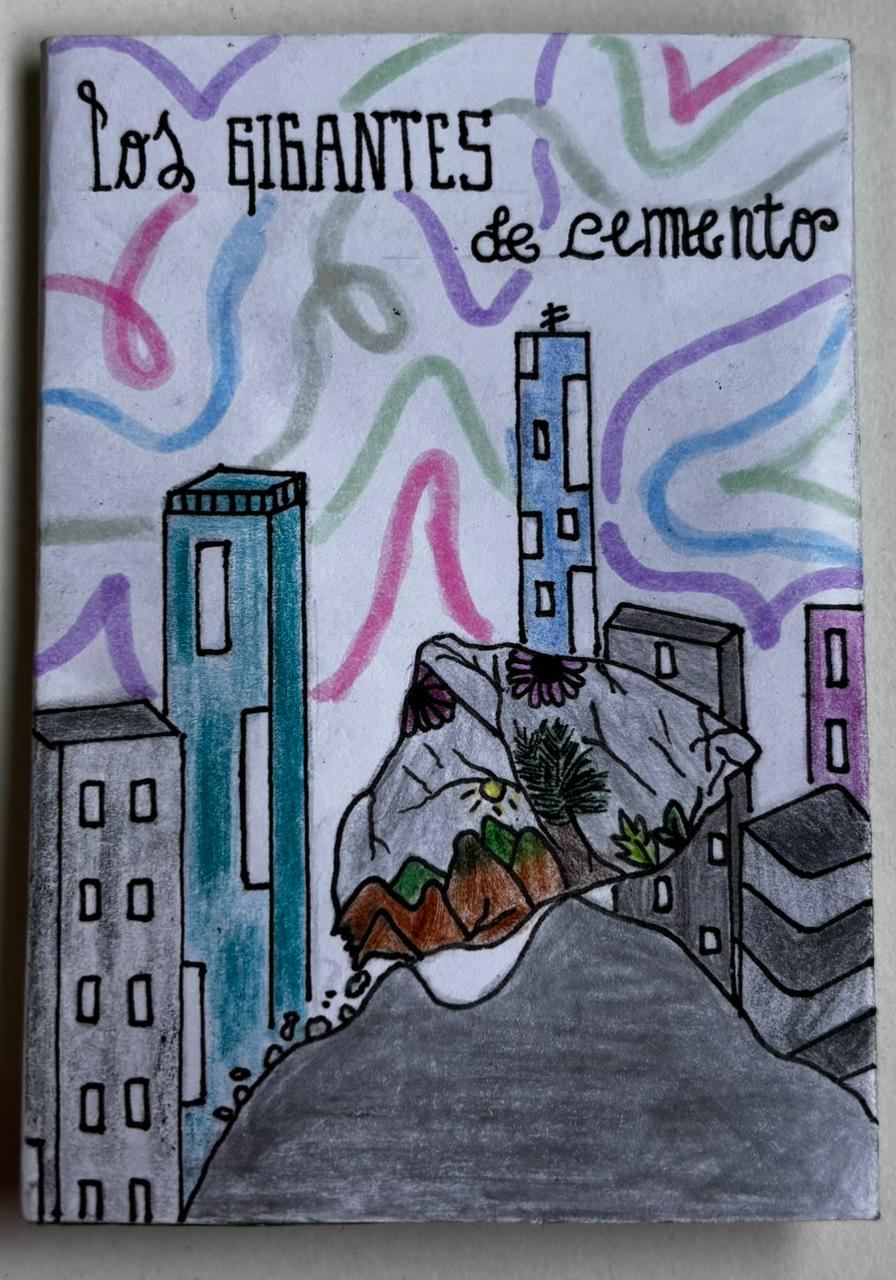 Los GIGANTES
de cemento